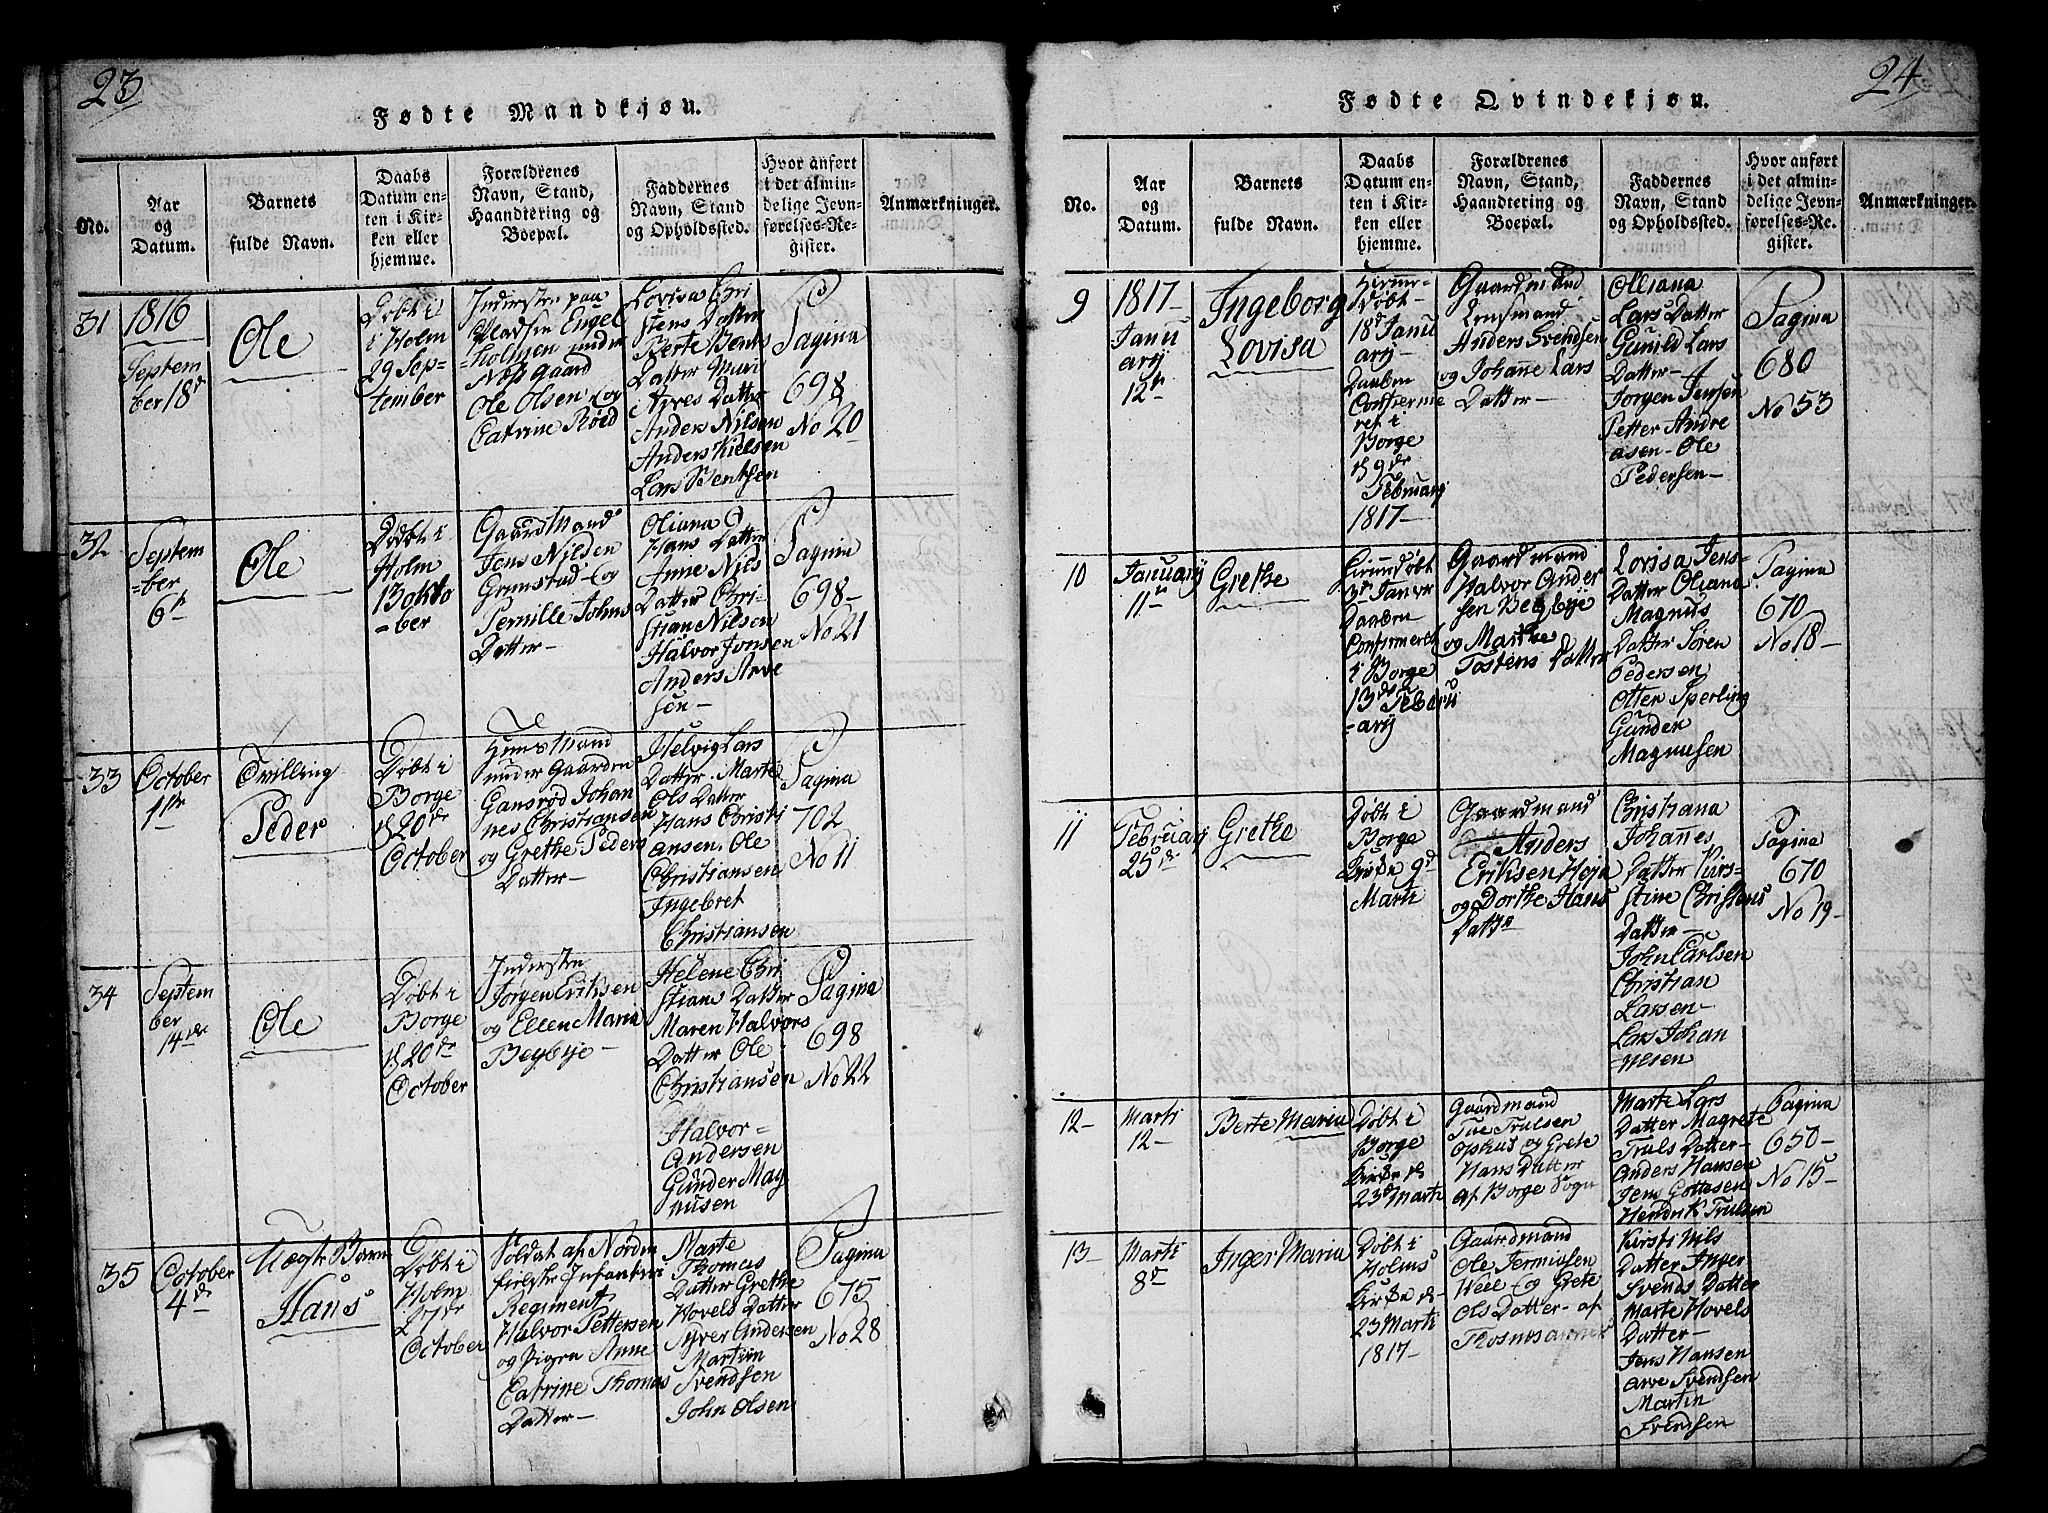 23
Fødte Mandkjøn.
No.
Aar
og
Datum.
Barnets
fulde Navn.
Daabs
Datum en-
ten i Kir-
ken eller
hjemme.
Forældrenes
Navn, Stand,
Haandtering og
Boepæl.
Faddernes
Navn, Stand
og Opholdssted.
Hvor anført
i det almin-
delige Jevn-
førelses-Re-
gister.
Anmærkninger.
31
1816
Septem
ber 18d
Ole
Døbt i
i Holm
29 Sep-
tember
Indersten paa
Engel
=holmen under
gaard
Ole Olsen og
Catrine Röed
Lovisa Chri
stens Datter
Berte Bents
Datter Mari
Datter
Anders Nilsen
Anders Nielsen
Lars Bentsen
Pagina
698
No 20
32
Septem
=ber
6t
Ole
Døbt i
Holm
13 okto
=ber
Gaardmand
Jens Nilsen
Grimstad og
Pernille Johns
Datter—
Oliana
Hans Datter
Anne Nils
Datter Chri-
stian Nilson
Halvor Jonsen
Anders Arve
sen—
Pagina
698—
No 21
33
October
1ste
Tvilling
Peder
Døbt i
Borge
d 20de
October
Huusmand
under Gaarden
Gansrød Johan
nes Christiansen
og Grethe Peders
Datter—
Helvig Lars
Datter. Marte
Ols Datter
Hans Christi
ansen. Ole
Christiansen
Ingebret
Christiansen
Pagina
702
No 11
34
Septem
ber
14de
Ole
Døbt i
Borge
d 20de
October
Indersten
Jørgen Eriksen
og Ellen Maria
Begbye—
Helene Chri
stians Datter
Maren Halvors
Datter Ole
Christiansen
Halvor—
Andersen
Gunder Mag
nusen
Pagina
698
No 22
35
October
4de
Uægte Barn
Hans
Døbt i
Holm
27de
October
Soldat af Norden
fieldske Infanteri
Regiment
Halvor Pettersen
og Pigen Anne
Catrine Thomas
Datter—
Marte
Thomas
Datter Grethe
Hovels Datter
Syver Andersen
Martin
Svendsen
John Olsen
Pagina
675
No 28
24
Fødte Qvindekjøn.
No.
Aar
og
Datum.
Barnets
fulde Navn.
Daabs
Datum en-
ten i Kir-
ken eller
hjemme.
Forældrenes
Navn, Stand,
Haandtering og
Boepæl.
Faddernes
Navn, Stand
og Opholdssted.
Hvor anført
i det almin-
delige Jevn-
førelses-Re-
gister.
Anmærkninger.
9
1817—
Janu
arij
12te
Ingeborg
Lovisa
Hiemme
Døbt—
18d Janu
arij—
Daaben
Confierme
ret i
Borge
d 9de
Februarij
1817—
Gaardmand
Lensmand
Anders Svendsen
og Johane Lars
Datter—
Olliana
Lars Datter
Gunild Lars
Datter—
Jørgen Jensen
Petter Andre
asen— Ole
Pedersen—
Pagina
680
No 53
10
Januarij
11te
Grethe
Hiemdøbt
Januar
Daaben
Confirmeret
i Borge
13de Febru
=arij
Gaardmand
Halvor Ander
sen Begbye
og Marthe
Tostens Datter
Lovisa Jens-
Datter Oliana
Magnus
Datter Søren
Pedersen
Otter Sperling
Gunder
Magnusen
Pagina
670
No 18—
11
Februarij
25de
Grethe
Døbt i
Borge
Kirke 9d
Marti
Gaardmand
Anders
Eriksen Hoja
og Dorthe Hans
Datter
Christiana
Johanes
Datter Kirs-
stine Christens
Datter—
John Carlsen
Christian
Larsen—
Lars Johan
nesen
Pagina
670
No 19—
12—
Marti
12—
Berte Maria
Døbt i
Borge
Kirke d
23d Marti
Gaardmand
Tue Trulsen
Ophus og Grete
Hans Datter
af Borge Sogn
Marte Lars
Datter Magrete
Truls Datter—
Anders Hansen
Jens Gottesen
Hendrik Trulsen
Pagina
650—
No 15—
13—
Marti
8d
Inger Maria
Døbt i
Holms
Kirke d
23 Marti
1817—
Gaardmand
Ole Jermiasen
og Grete
Ols Datter— af
Kirsti Nils
Datter Inger
Svends Datter
Marte Hovels
Datter—
Jens Hansen
Arve Svendsen
Martin
Svendsen